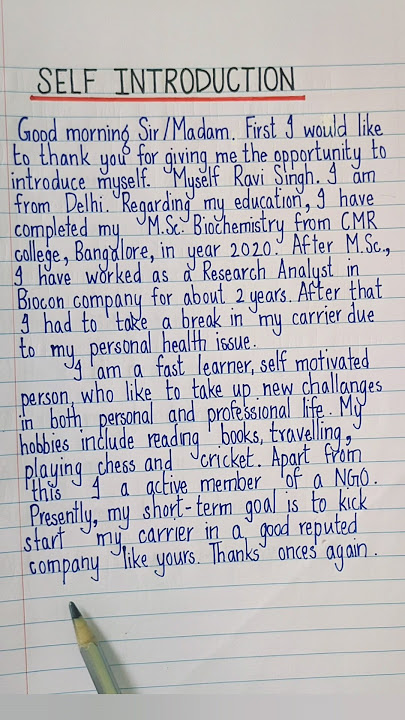 SELF INTRODUCTION
Good morning Sir/Madam. First I would like
to thank you for giving me the opportunity to
introduce myself. Myself Ravi Singh. I am
from Delhi. Regarding my education, I have
completed my M.Sc. Biochemistry from CMR
college, Bangalore, in year 2020. After M.Sc.,
I have worked as a Research Analyst in
Biocon company for about 2 years. After that
I had to take a break in my carrier due
to my personal health issue.
I am a fast learner, self motivated
person, who like to take up new challanges
in both personal and professional life. My
hobbies include reading books, travelling,
playing chess and cricket. Apart from
this I a active member of a NGO.
Presently, my short-term goal is to kick
start my carrier in a good reputed
company like yours. Thanks onces again.